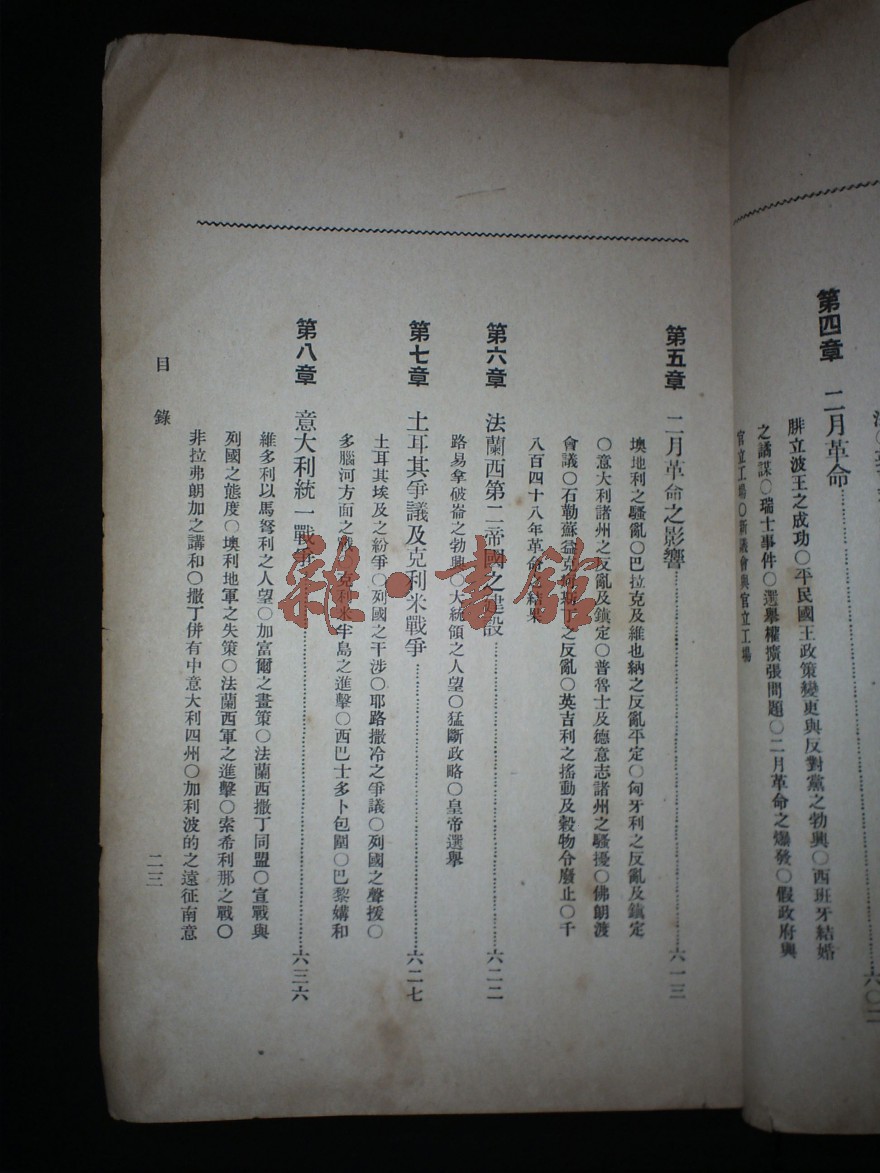 第四章 二月革命
腓立波王之成功○平民國王政策變更與反對黨之勃興○西班牙結婚
之譎謀○瑞士事件○選舉權擴張問題○二月革命之爆發○假政府與
官立工場○新議會與官立工場
第五章 二月革命之影響 六一三
墺地利之騷亂○巴拉克及維也納之反亂平定○匈牙利之反亂及鎮定
○意大利諸州之反亂及鎮定○普魯士及德意志諸州之騷擾○佛朗渡
會議○石勒蘇益克何斯丁之反亂○英吉利之搖動及穀物令廢止○千
八百四十八年革命之結果
第六章 法蘭西第二帝國之建設 六二二
路易拿破崙之勃興○大統領之人望○猛斷政略○皇帝選舉
第七章 土耳其爭議及克利米戰爭 六二七
土耳其埃及之紛爭○列國之干涉○耶路撒冷之爭議○列國之聲援○
多腦河方面之戰○克利米半島之進擊○西巴士多卜包圍○巴黎媾和
第八章 意大利統一戰爭 六三六
維多利以馬弩利之人望○加富爾之畫策○法蘭西撒丁同盟○宣戰與
列國之態度○墺利地軍之失策○法蘭西軍之進擊○索希利那之戰○
非拉弗朗加之講和○撒丁併有中意大利四州○加利波的之遠征南意
目錄 二三
雜·書館